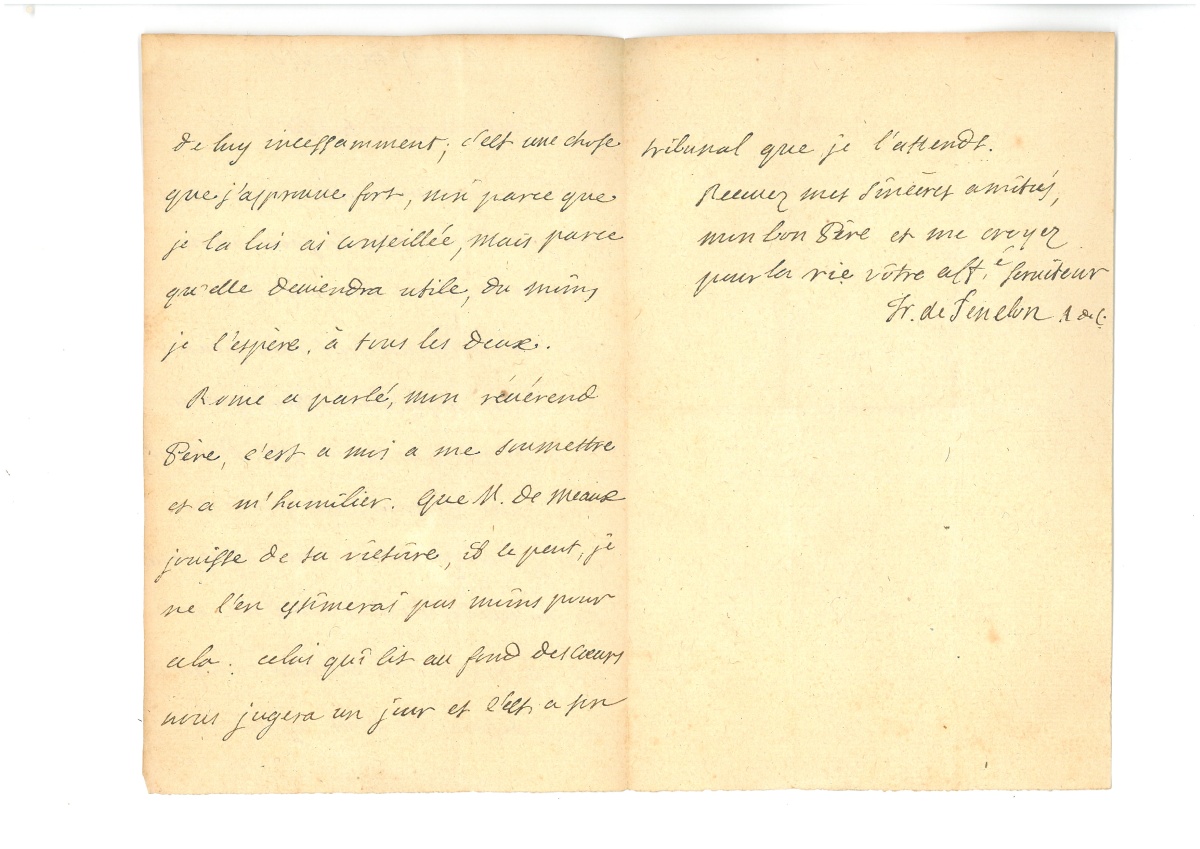 de luy incessamment; c'est une chose
que j'approuve fort, non parce que
je la lui ai conseillée, mais parce
qu'elle deviendra utile, du moins
je l'espère, à tous les deux.
Rome a parlé, mon révérend
Père, c'est a moi a me soumettre
et a m'humilier. Que M. de Meaux
jouisse de sa victoire, s'il le peut, je
ne l'en estimerai pas moins pour
cela. celui qui lit au fond des cœurs
nous jugera un jour et c'est a son
tribunal que je l'attends.
Recevez mes sincères amitiés,
mon bon Père et me croyez
pour la vie vôtre aff.é serviteur
Fr. de Fenelon A. de C.